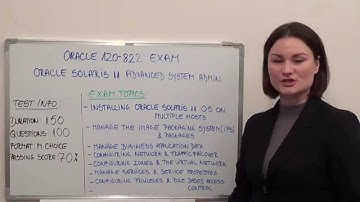 ORACLE 1Z0-822 EXAM
ORACLE SOLARIS 11 ADVANCED SYSTEM ADMIN
TEST INFO:
DURATION: 150
QUESTIONS: 100
FORMAT: M.CHOICE
PASSING SCORE: 70%
EXAM TOPICS:
- INSTALLING ORACLE SOLARIS 11 OS ON
MULTIPLE HOSTS
- MANAGE THE IMAGE PACKAGING SYSTEM (IPS)
& PACKAGES
- MANAGE BUSINESS APPLICATION DATA
- CONFIGURING NETWORK & TRAFFIC FAILOVER
- CONFIGURING ZONES & THE VIRTUAL NETWORK
- MANAGE SERVICES & SERVICE PROPERTIES
- CONFIGURING PRIVILEGES & ROLE BASED ACCESS
CONTROL